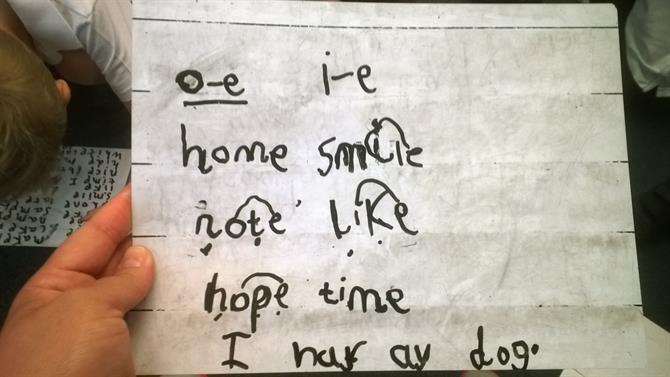 o-e i-e
home smile
note like
hope time
I hav av dog.